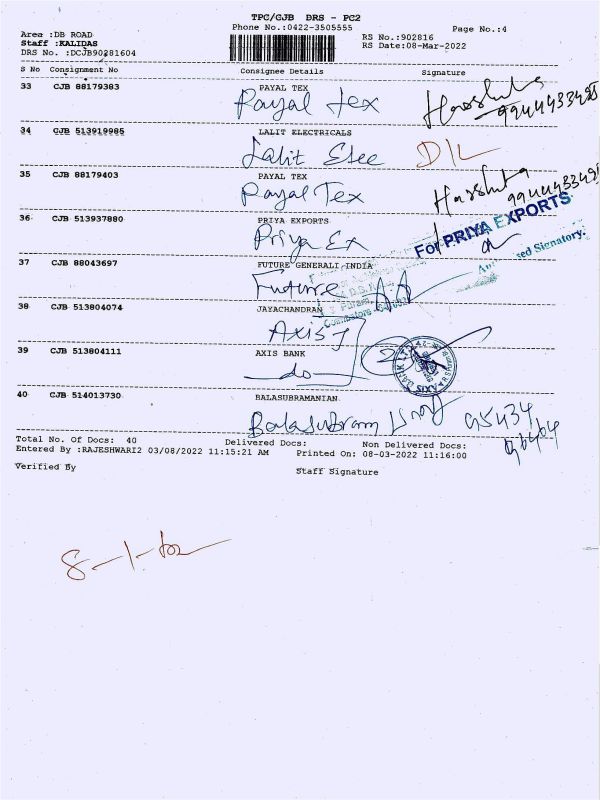 TPC/GJB DRS - PC2
Phone No.:0422-3505555
Page No.:4
Area :DB ROAD
Staff :KALIDAS
DRS No. :DCJB90281604
RS No.:902816
RS Date:08-Mar-2022
S No Consignment No Consignee Details Signature
33 CJB 88179383 PAYAL TEX
Payal Tex Harshita
9944433495
34 CJB 513919985 LALIT ELECTRICALS
Lalit Elec D/L
35 CJB 88179403 PAYAL TEX
Payal Tex Harshita
9944433495
36 CJB 513937880 PRIYA EXPORTS
Priya Ex
For PRIYA EXPORTS
Signatory.
37 CJB 88043697 FUTURE GENERALI INDIA
Future
Coimbatore
38 CJB 513804074 JAYACHANDRAN
Axis J
39 CJB 513804111 AXIS BANK
do
AXIS BANK LTD
40 CJB 514013730 BALASUBRAMANIAN
Balasubram 95434
Total No. Of Docs: 40 Delivered Docs: Non Delivered Docs:
Entered By :RAJESHWARI2 03/08/2022 11:15:21 AM Printed On: 08-03-2022 11:16:00
Verified By Staff Signature